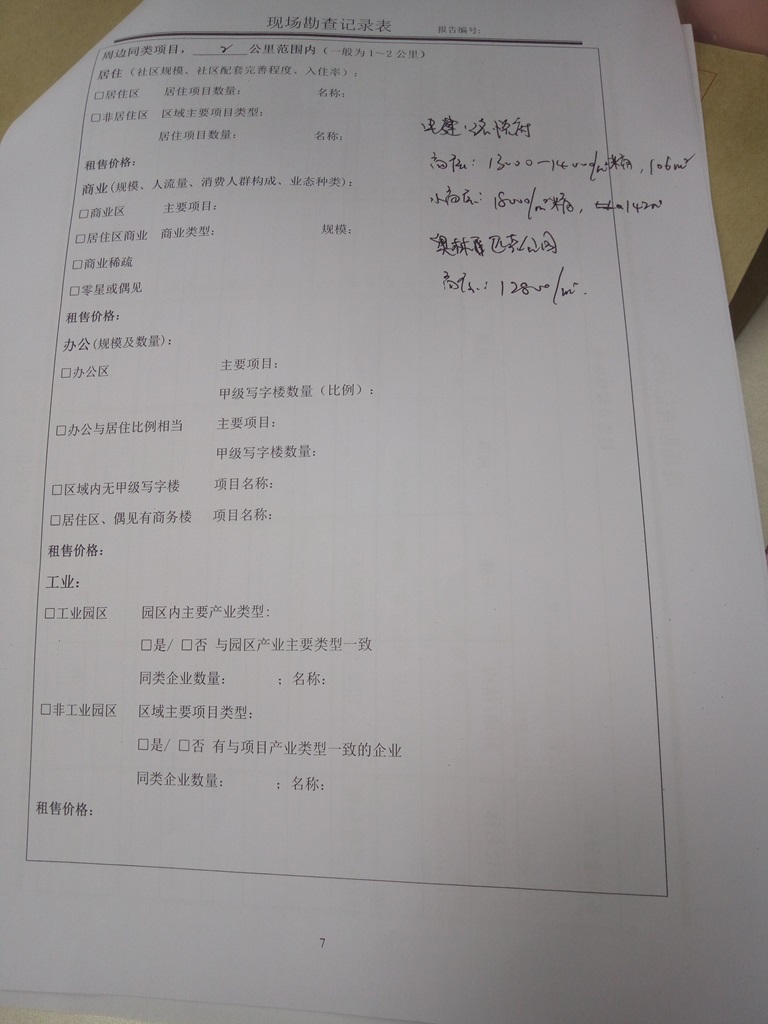 现场勘查记录表 报告编号:
周边同类项目，2公里范围内（一般为1~2公里）
居住（社区规模、社区配套完善程度、入住率）:
□居住区 居住项目数量: 名称:
□非居住区 区域主要项目类型:
居住项目数量: 名称:
租售价格:
商业(规模、人流量、消费人群构成、业态种类):
□商业区 主要项目:
□居住区商业 商业类型: 规模:
□商业稀疏
□零星或偶见
租售价格:
办公(规模及数量):
□办公区 主要项目:
甲级写字楼数量（比例）:
□办公与居住比例相当 主要项目:
甲级写字楼数量:
□区域内无甲级写字楼 项目名称:
□居住区、偶见有商务楼 项目名称:
租售价格:
工业:
□工业园区 园区内主要产业类型:
□是/ □否 与园区产业主要类型一致
同类企业数量: ；名称:
□非工业园区 区域主要项目类型:
□是/ □否 有与项目产业类型一致的企业
同类企业数量: ；名称:
租售价格:
悦府
高层: 13000-14000/m² 106m²
小高层: 18000/m² 142m²
奥林匹克公园
高层: 12800/m².
7